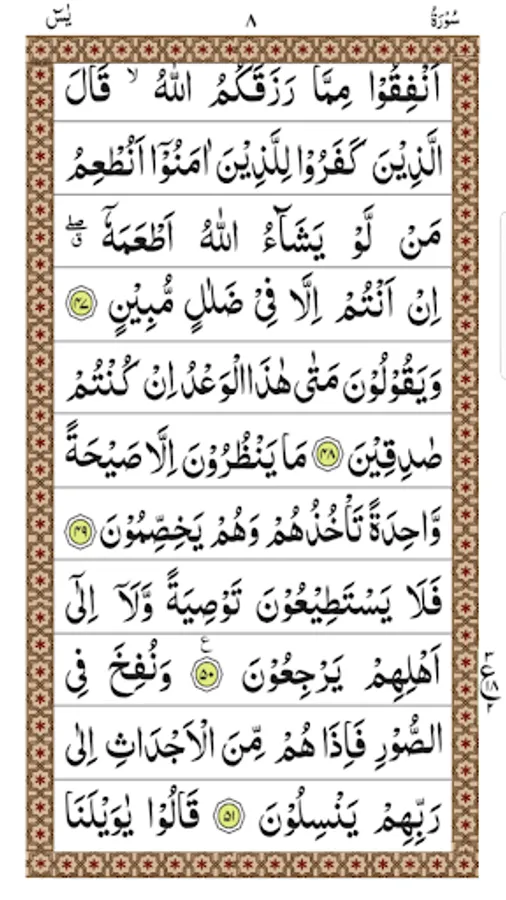 سُوْرَةُ ٨ يٰسٓ
اَنْفِقُوْا مِمَّا رَزَقَكُمُ اللّٰهُ ۙ قَالَ
الَّذِيْنَ كَفَرُوْا لِلَّذِيْنَ اٰمَنُوْۤا اَنُطْعِمُ
مَنْ لَّوْ يَشَآءُ اللّٰهُ اَطْعَمَهٗۤ ۖق
اِنْ اَنْتُمْ اِلَّا فِيْ ضَلٰلٍ مُّبِيْنٍ ۴۷
وَيَقُوْلُوْنَ مَتٰى هٰذَا الْوَعْدُ اِنْ كُنْتُمْ
صٰدِقِيْنَ ۴۸ مَا يَنْظُرُوْنَ اِلَّا صَيْحَةً
وَّاحِدَةً تَاْخُذُهُمْ وَهُمْ يَخِصِّمُوْنَ ۴۹
فَلَا يَسْتَطِيْعُوْنَ تَوْصِيَةً وَّلَاۤ اِلٰۤى
اَهْلِهِمْ يَرْجِعُوْنَ ۵۰ ع وَنُفِخَ فِي
الصُّوْرِ فَاِذَا هُمْ مِّنَ الْاَجْدَاثِ اِلٰى
رَبِّهِمْ يَنْسِلُوْنَ ۵۱ قَالُوْا يٰوَيْلَنَا